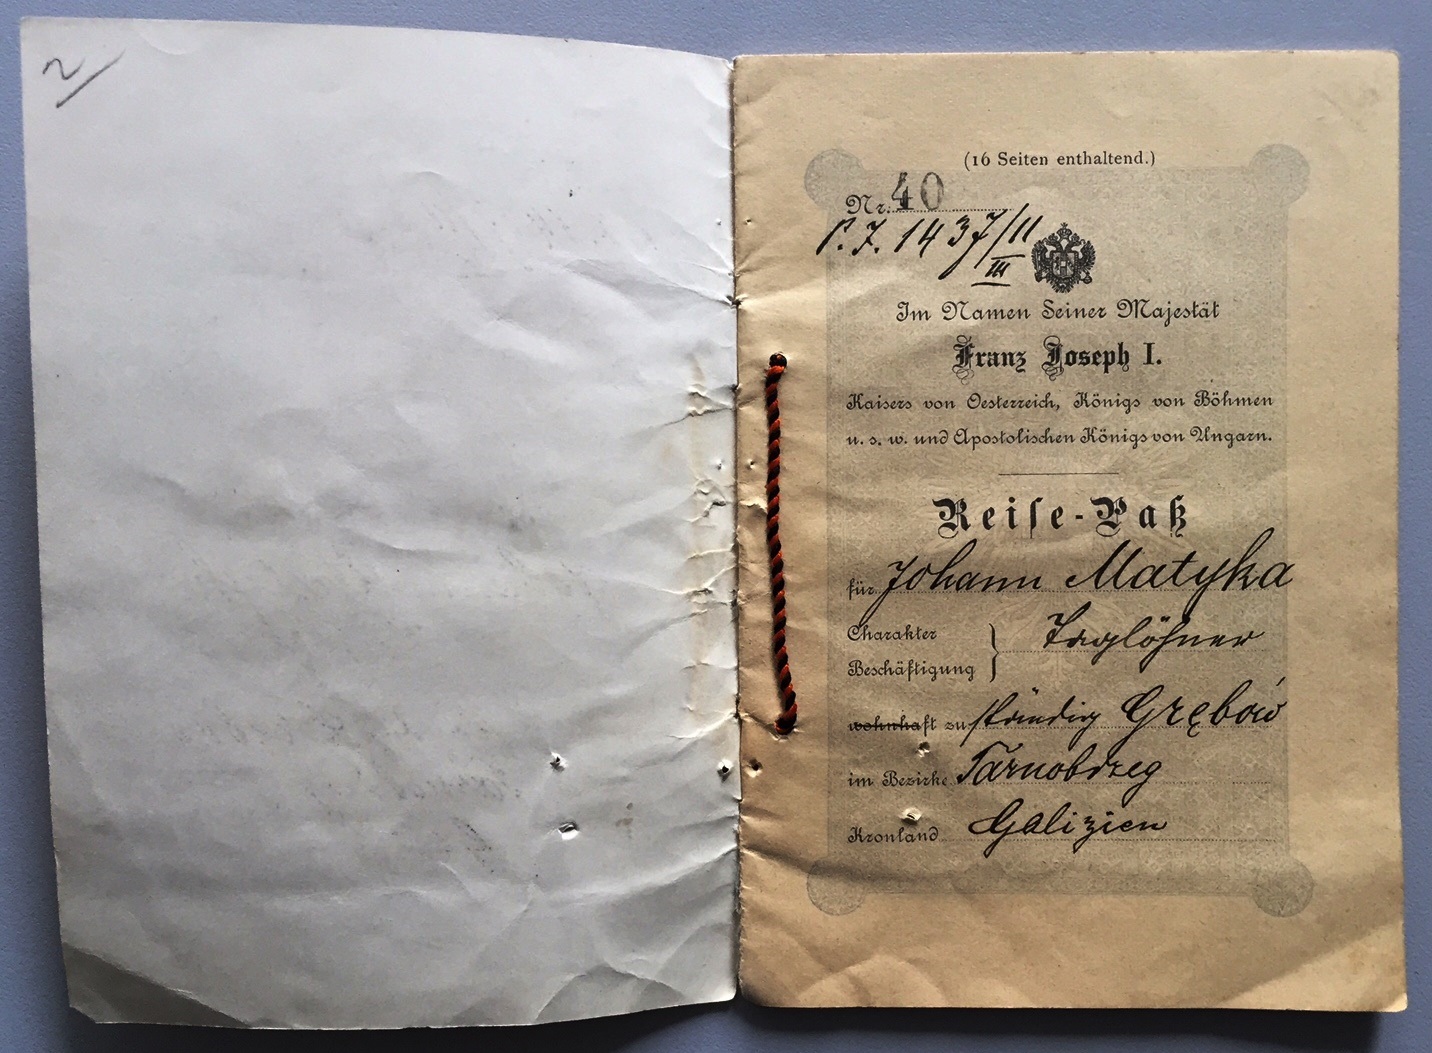 2
(16 Seiten enthaltend.)
Nr. 40
P. Z. 1437/11
III
Im Namen Seiner Majestät
Franz Joseph I.
Kaisers von Oesterreich, Königs von Böhmen
u. s. w. und Apostolischen Königs von Ungarn.
Reise-Paß
für Johann Matyka
Charakter
Beschäftigung } Taglöhner
wohnhaft zuständig Grębów
im Bezirke Tarnobrzeg
Kronland Galizien